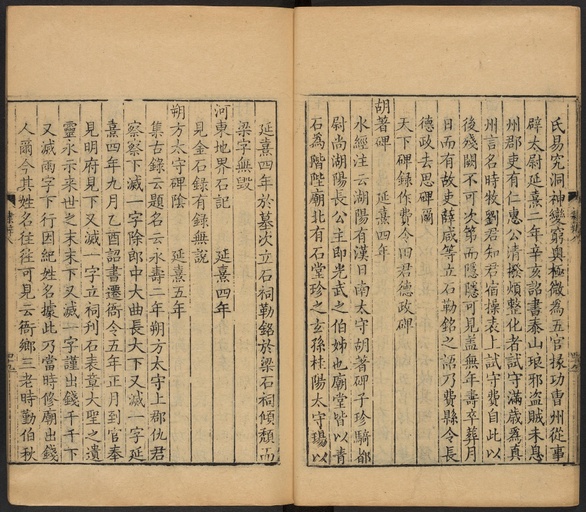 氏易究洞神變窮奧極微為五官掾功曹州從事
辟太尉延熹二年辛亥詔書泰山琅邪盜賊未息
州郡吏有仁惠公清撥煩整化者試守滿歲為真
州言名時牧劉君知君宿操表上試守費自此以
後殘闕不可次第而隱隱可見蓋無年壽卒葬月
日而有故吏薛咸等立石勒銘之語乃費縣令長
德政去思碑爾
天下碑錄作費令田君德政碑
胡著碑 延熹四年
水經注云湖陽有漢日南太守胡著碑子珍騎都
尉尚湖陽長公主即光武之伯姊也廟堂皆以青
石為階陛廟北有石堂珍之玄孫桂陽太守瑒以
延熹四年於墓次立石祠勒銘於梁石祠傾頹而
梁字無毀
河東地界石記 延熹四年
見金石錄有錄無說
朔方太守碑陰 延熹五年
集古錄云題名云永壽二年朔方太守上郡仇君
察察下滅一字除郎中大曲長大下又滅一字延
熹四年九月乙酉詔書遷衙令五年正月到官奉
見明府見下又滅一字立祠刋石表章大聖之遺
靈永示來世之未末下又滅一字謹出錢千千下
又滅兩字下行因紀姓名據此乃當時修廟出錢
人爾今其姓名往往可見云衙鄉三老時勤伯秋